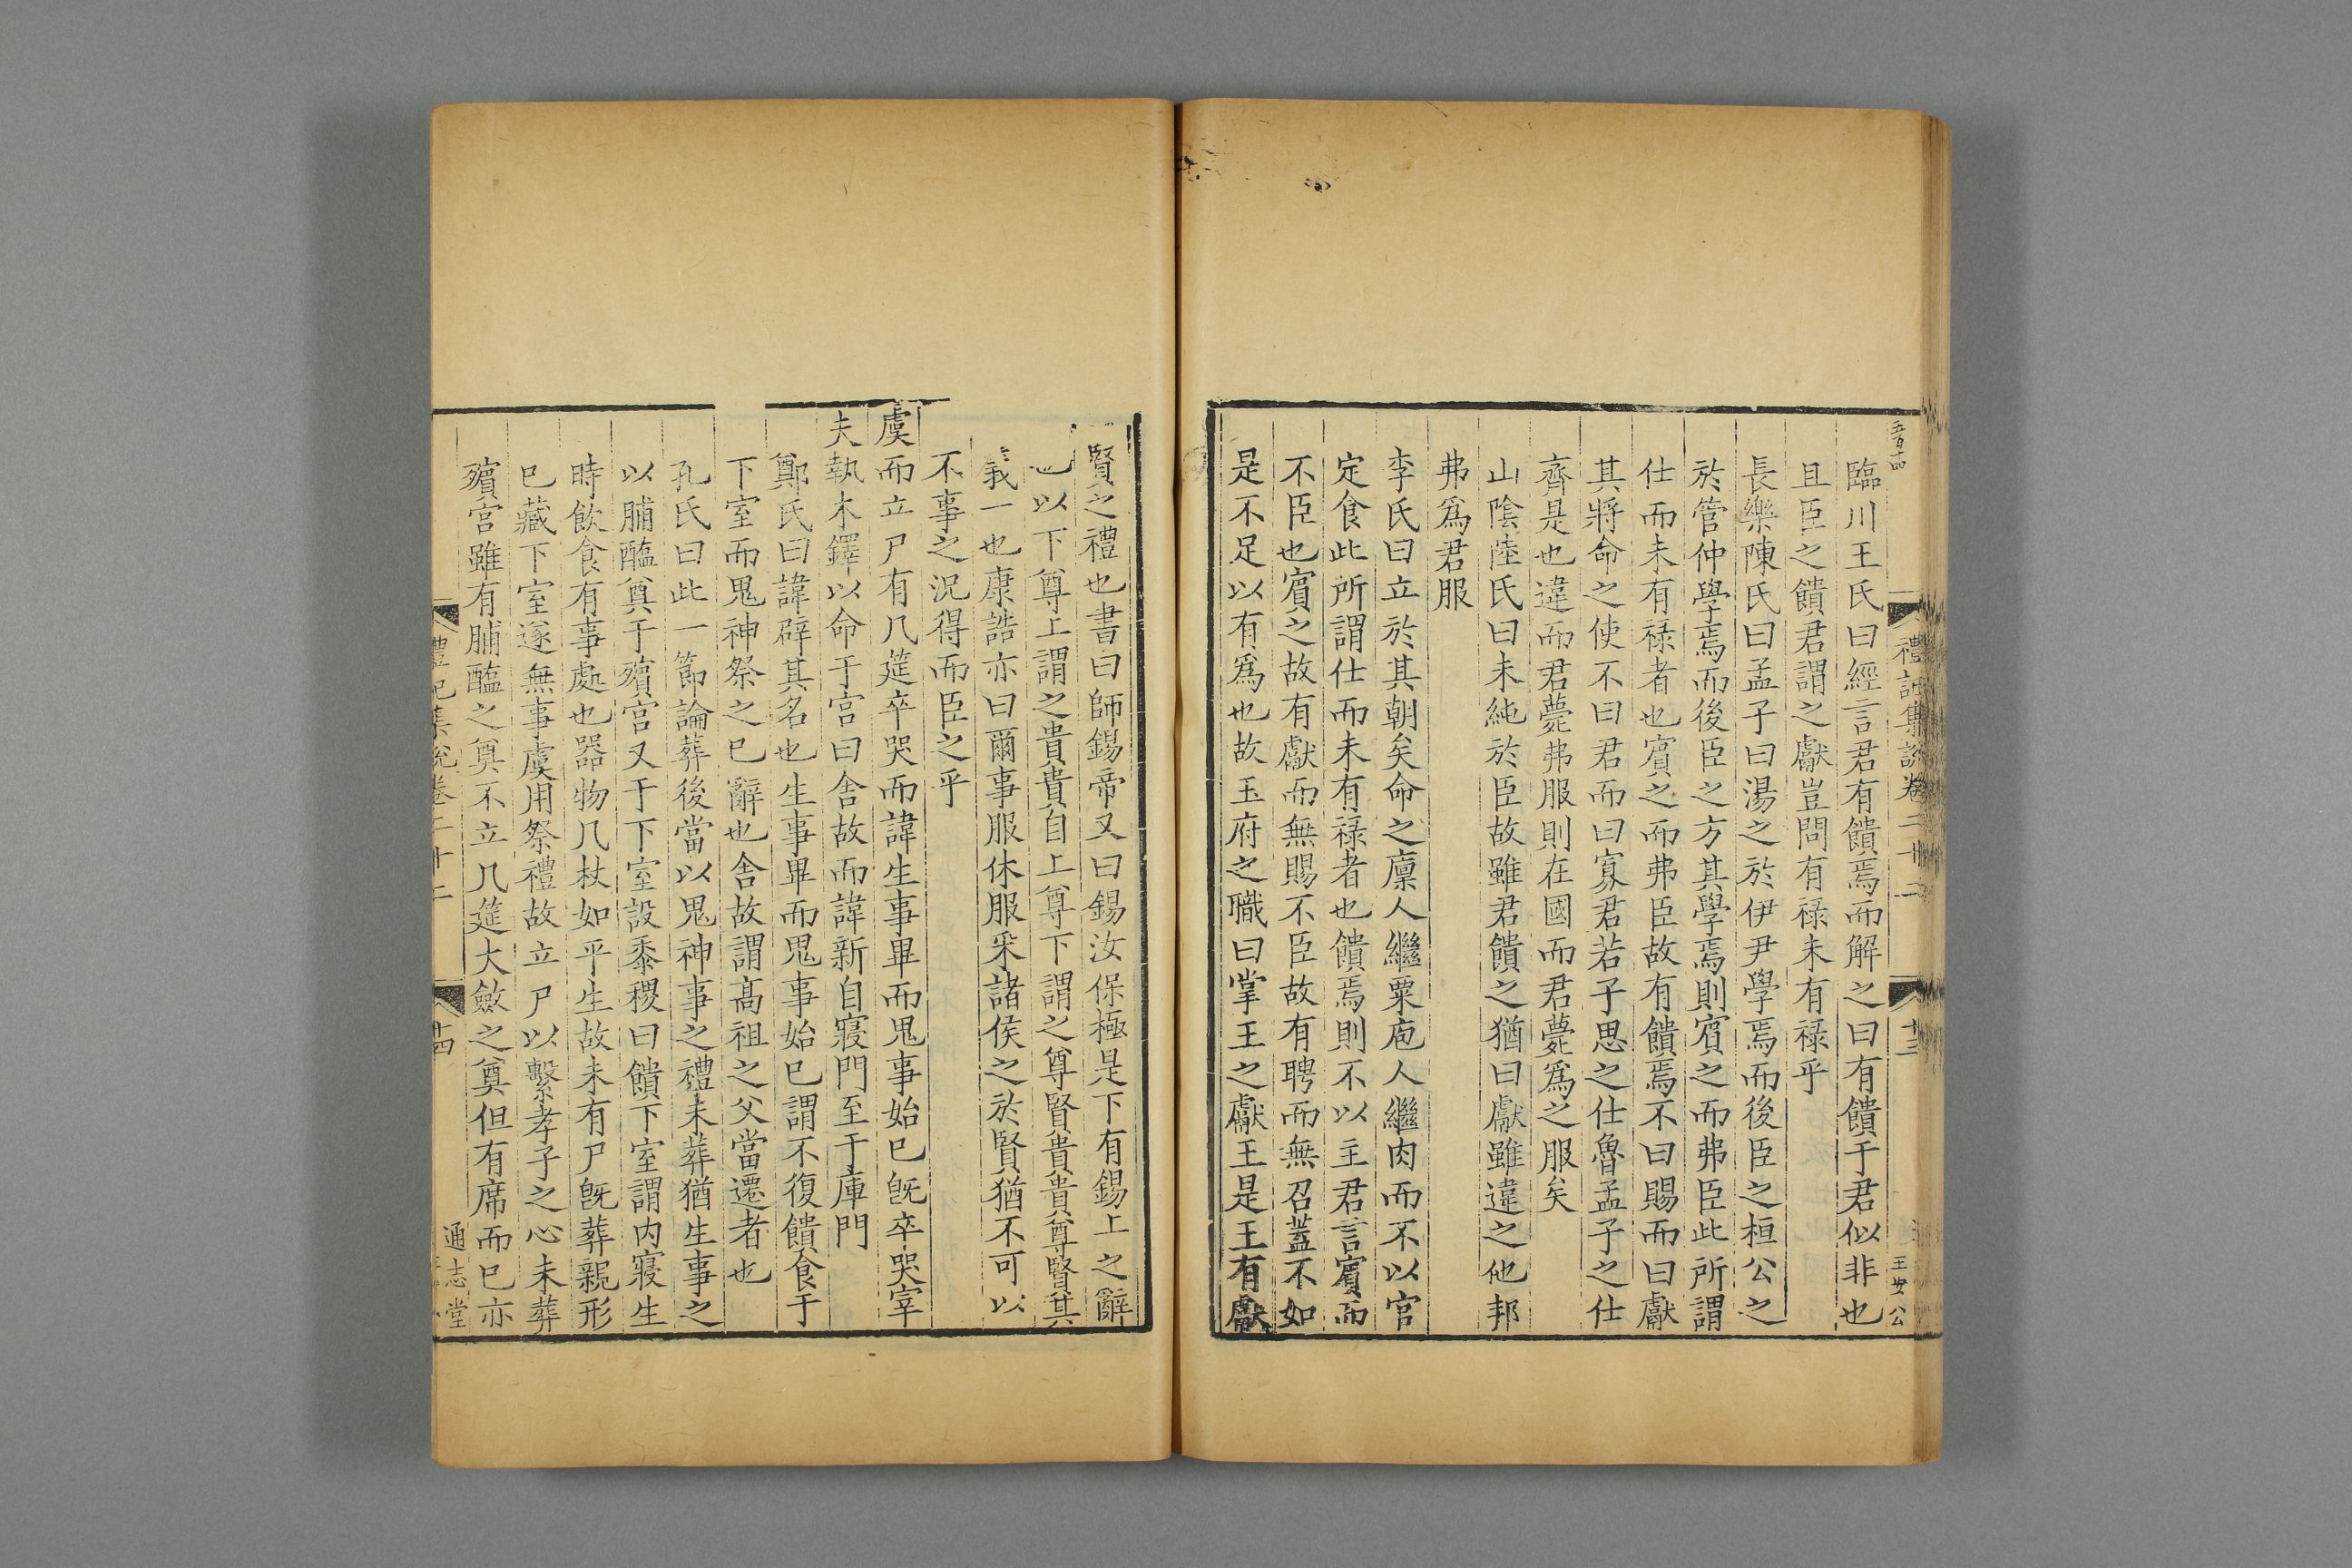 五百十四
禮記集說卷二十二
十三
王安公
臨川王氏曰經言君有饋焉而解之曰有饋于君似非也
且臣之饋君謂之獻豈問有祿未有祿乎
長樂陳氏曰孟子曰湯之於伊尹學焉而後臣之桓公之
於管仲學焉而後臣之方其學焉則賓之而弗臣此所謂
仕而未有祿者也賓之而弗臣故有饋焉不曰賜而曰獻
其將命之使不曰君而曰寡君若子思之仕魯孟子之仕
齊是也違而君薨弗服則在國而君薨爲之服矣
山陰陸氏曰未純於臣故雖君饋之猶曰獻雖違之他邦
弗爲君服
李氏曰立於其朝矣命之廩人繼粟庖人繼肉而不以官
定食此所謂仕而未有祿者也饋焉則不以主君言賓而
不臣也賓之故有獻而無賜不臣故有聘而無召蓋不如
是不足以有爲也故玉府之職曰掌王之獻王是王有獻
賢之禮也書曰師錫帝又曰錫汝保極是下有錫上之辭
也以下尊上謂之貴貴自上尊下謂之尊賢貴貴尊賢其
義一也康誥亦曰爾事服休服采諸侯之於賢猶不可以
不事之況得而臣之乎
虞而立尸有几筵卒哭而諱生事畢而鬼事始已旣卒哭宰
夫執木鐸以命于宮曰舍故而諱新自寢門至于庫門
鄭氏曰諱辟其名也生事畢而鬼事始已謂不復饋食于
下室而鬼神祭之已辭也舍故謂高祖之父當遷者也
孔氏曰此一節論葬後當以鬼神事之禮未葬猶生事之
以脯醢奠于殯宮又于下室設黍稷曰饋下室謂內寢生
時飲食有事處也器物几杖如平生故未有尸旣葬親形
已藏下室遂無事虞用祭禮故立尸以繫孝子之心未葬
殯宮雖有脯醢之奠不立几筵大斂之奠但有席而已亦
禮記集說卷二十二
十四
通志堂